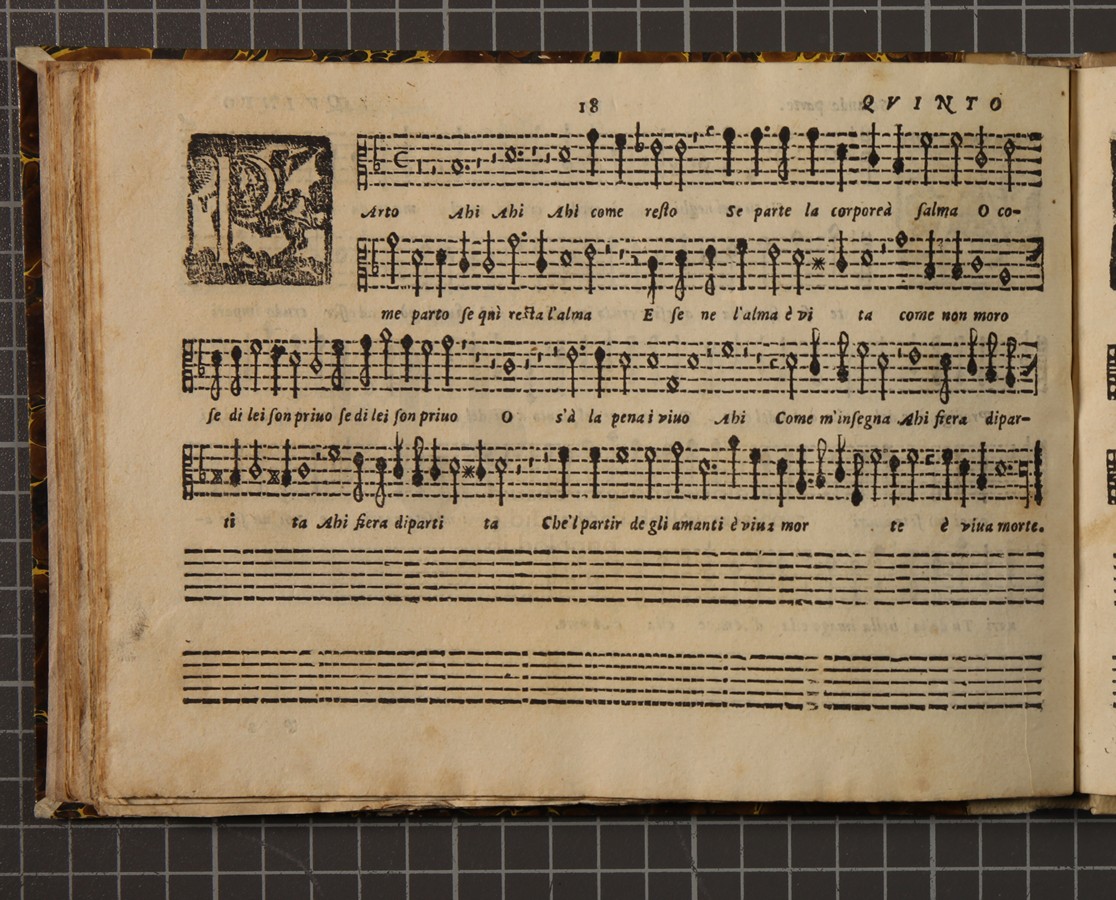 18 QVINTO
PArto Ahi Ahi Ahi come resto Se parte la corporea salma O co-
me parto se quì resta l'alma E se ne l'alma è vi ta come non moro
se di lei son priuo se di lei son priuo O s'à la pena i viuo Ahi Come m'insegna Ahi fiera dipar-
ti ta Ahi fiera diparti ta Che'l partir de gli amanti è viua mor te è viua morte.